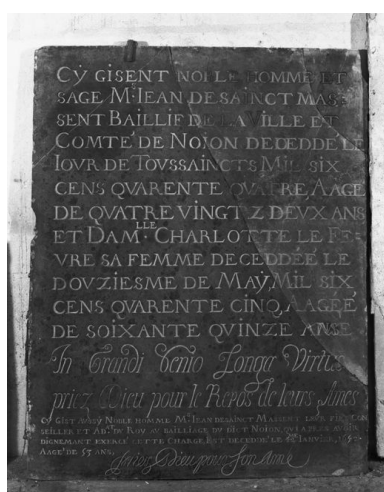 CY GISENT NOBLE HOMME ET
SAGE Mᴿ. IEAN DE SAINCT MAS
SENT BAILLIF DE LA VILLE ET
COMTE DE NOION DECEDDE LE
IOVR DE TOVSSAINCTS MIL SIX
CENS QVARENTE QVATRE AAGE
DE QVATRE VINGTZ DEVX ANS
ET DAMᴸᴸᴱ CHARLOTTE LE FE-
VRE SA FEMME DECEDDÉE LE
DOVZIESME DE MAY MIL SIX
CENS QVARENTE CINQ AAGEE
DE SOIXANTE QVINZE ANS
In Grandi Genio Longa Virtus
priez Dieu pour le Repos de leurs Ames
CY GIST AVSSY NOBLE HOMME Mᴿ IEAN DE SAINCT MASSENT LEVR FILZ CON
SEILLER ET DV ROY AV BAILLIAGE DVDICT NOION, QVI APRES AVOIR
DIGNEMANT EXERCE CETTE CHARGE, EST DECEDDE LE IANVIER
AAGE DE 55 ANS,
Priez Dieu pour Son Ame